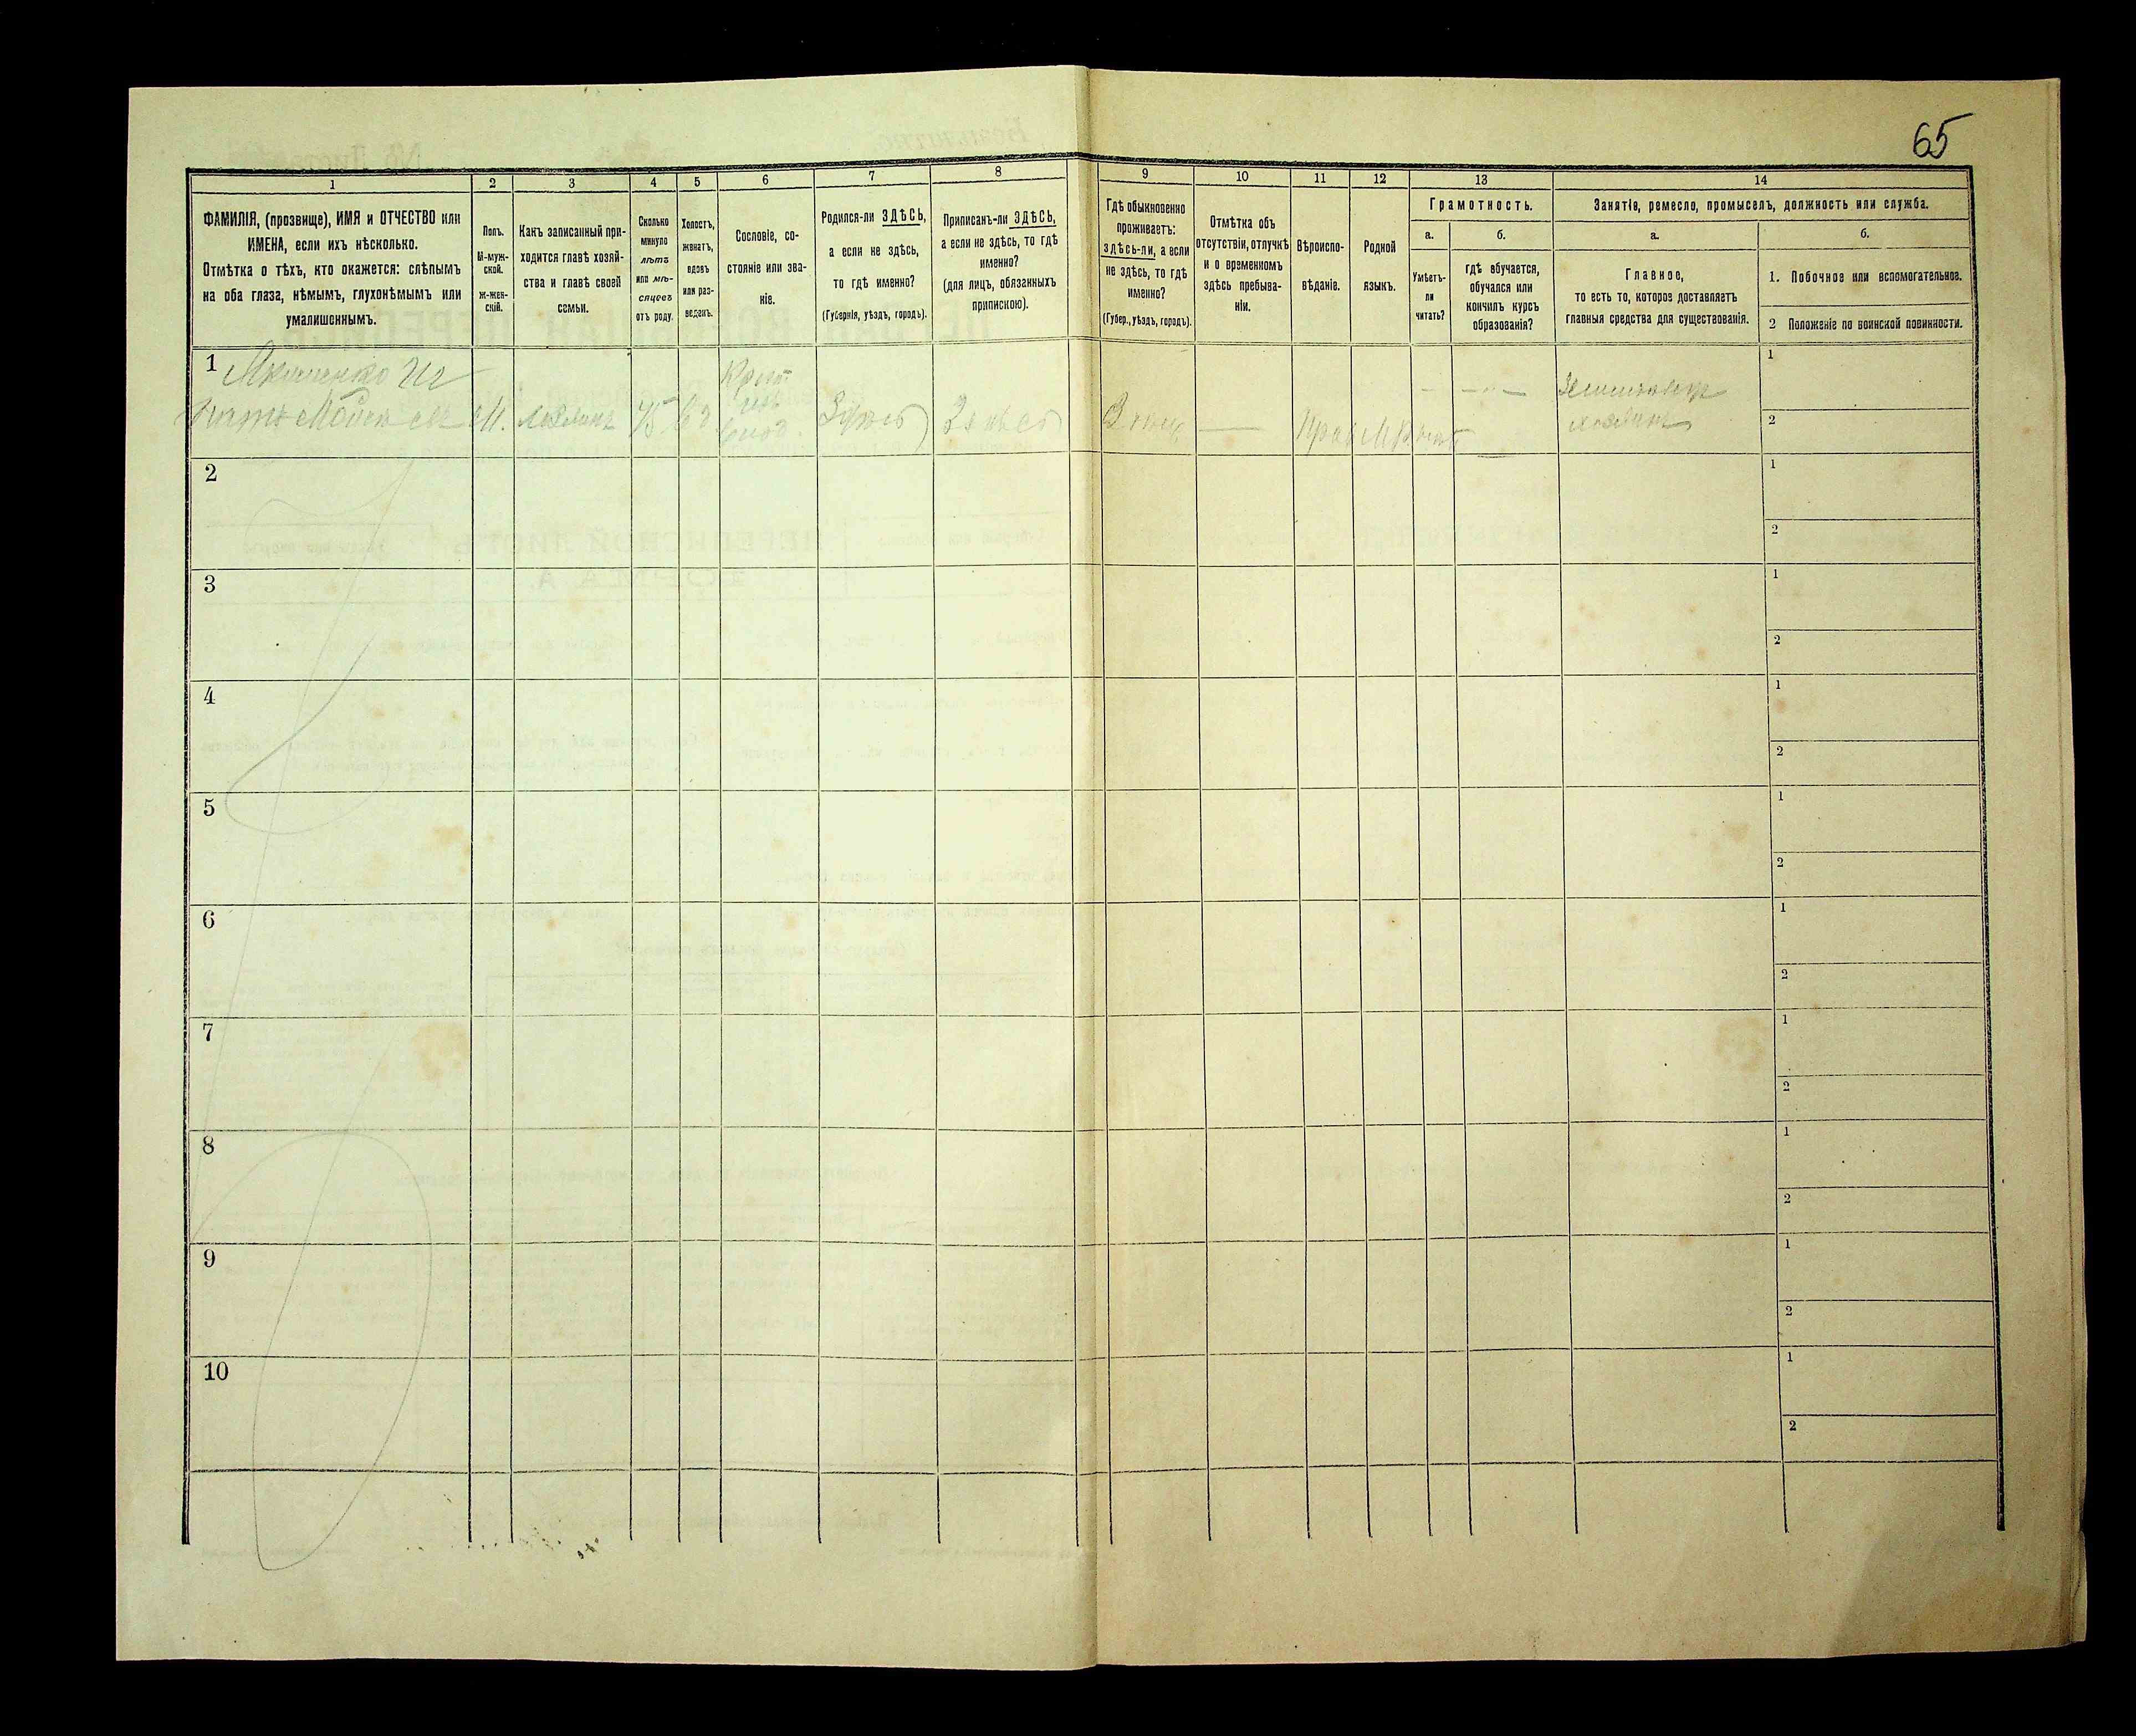 65
1 2 3 4 5 6 7 8 9 10 11 12 13 14
ФАМИЛІЯ, (прозвище), ИМЯ и ОТЧЕСТВО или
ИМЕНА, если ихъ нѣсколько.
Отмѣтка о тѣхъ, кто окажется: слѣпымъ
на оба глаза, нѣмымъ, глухонѣмымъ или
умалишеннымъ.
Полъ.
М-муж-
ской.
ж-жен-
скій.
Какъ записанный при-
ходится главѣ хозяй-
ства и главѣ своей
семьи.
Сколько
минуло
лѣтъ
или мѣ-
сяцевъ
отъ роду.
Холостъ,
женатъ,
вдовъ
или раз-
веденъ.
Сословіе, со-
стояніе или зва-
ніе.
Родился-ли ЗДѢСЬ,
а если не здѣсь,
то гдѣ именно?
(Губернія, уѣздъ, городъ).
Приписанъ-ли ЗДѢСЬ,
а если не здѣсь, то гдѣ
именно?
(для лицъ, обязанныхъ
припискою).
Гдѣ обыкновенно
проживаетъ:
здѣсь-ли, а если
не здѣсь, то гдѣ
именно?
(Губер., уѣздъ, городъ).
Отмѣтка объ
отсутствіи, отлучкѣ
и о временномъ
здѣсь пребыва-
ніи.
Вѣроиспо-
вѣданіе.
Родной
языкъ.
Грамотность.
а.
Умѣетъ-
ли
читать?
б.
гдѣ обучается,
обучался или
кончилъ курсъ
образованія?
Занятіе, ремесло, промыселъ, должность или служба.
а.
Главное,
то есть то, которое доставляетъ
главныя средства для существованія.
б.
1. Побочное или вспомогательное.
2 Положеніе по воинской повинности.
1
М.
хозяинъ
Крест.
изъ
Здѣсь
Прав
хозяинъ
1
2
2
1
2
3
1
2
4
1
2
5
1
2
6
1
2
7
1
2
8
1
2
9
1
2
10
1
2